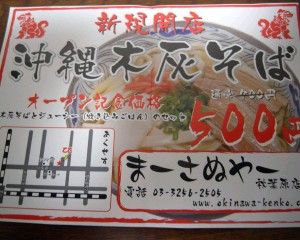 新規開店
沖縄木灰そば
オープン記念価格
通常700円
木灰そばとジューシー(炊き込みごはん)のセット
500円
まーさぬやー
秋葉原店
電話 03-3256-2505
www.okinawa-kenko.c